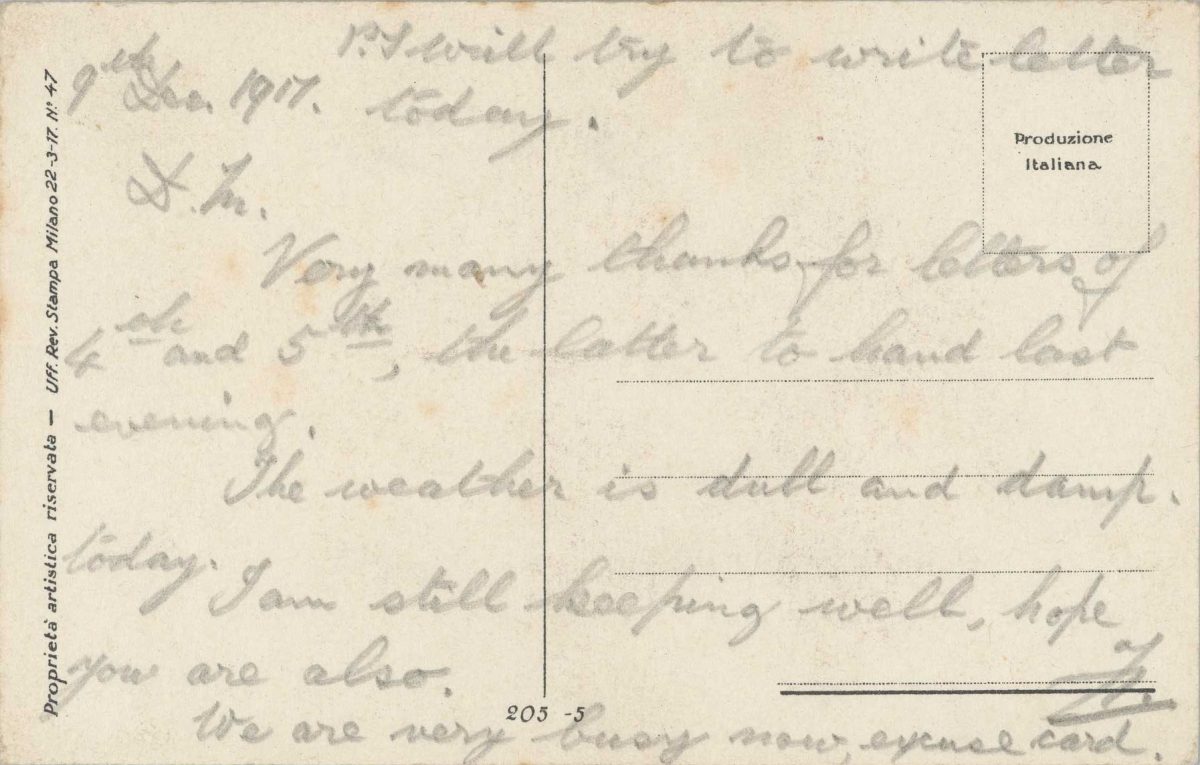 P.S I will try to write letter
today.
9th Dec. 1917.
D.M.
Very many thanks for letters of
4th and 5th, the latter to hand last
evening.
The weather is dull and damp.
today.
I am still keeping well, hope
you are also.
We are very busy now, excuse card.
Produzione
Italiana
205 -5
Proprietà artistica riservata — Uff. Rev. Stampa Milano 22-3-17. N.º 47